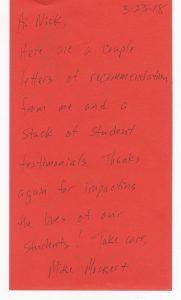 3-23-18
Hi Nick,
Here are a couple
letters of recommendation
from me and a
stack of student
testimonials. Thanks
again for impacting
the lives of our
students! Take care,
Mike